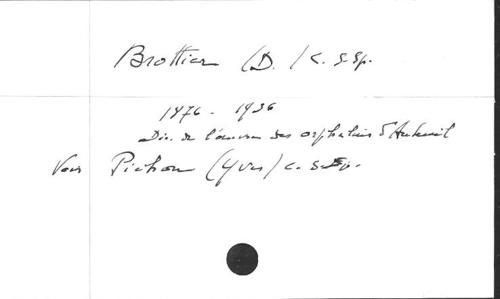 Brottier (D.) c. s. sp.
1876 - 1936
Dir. de l'œuvre des orphelins d'Auteuil
Voir Pichon (Yves) c. s. sp.